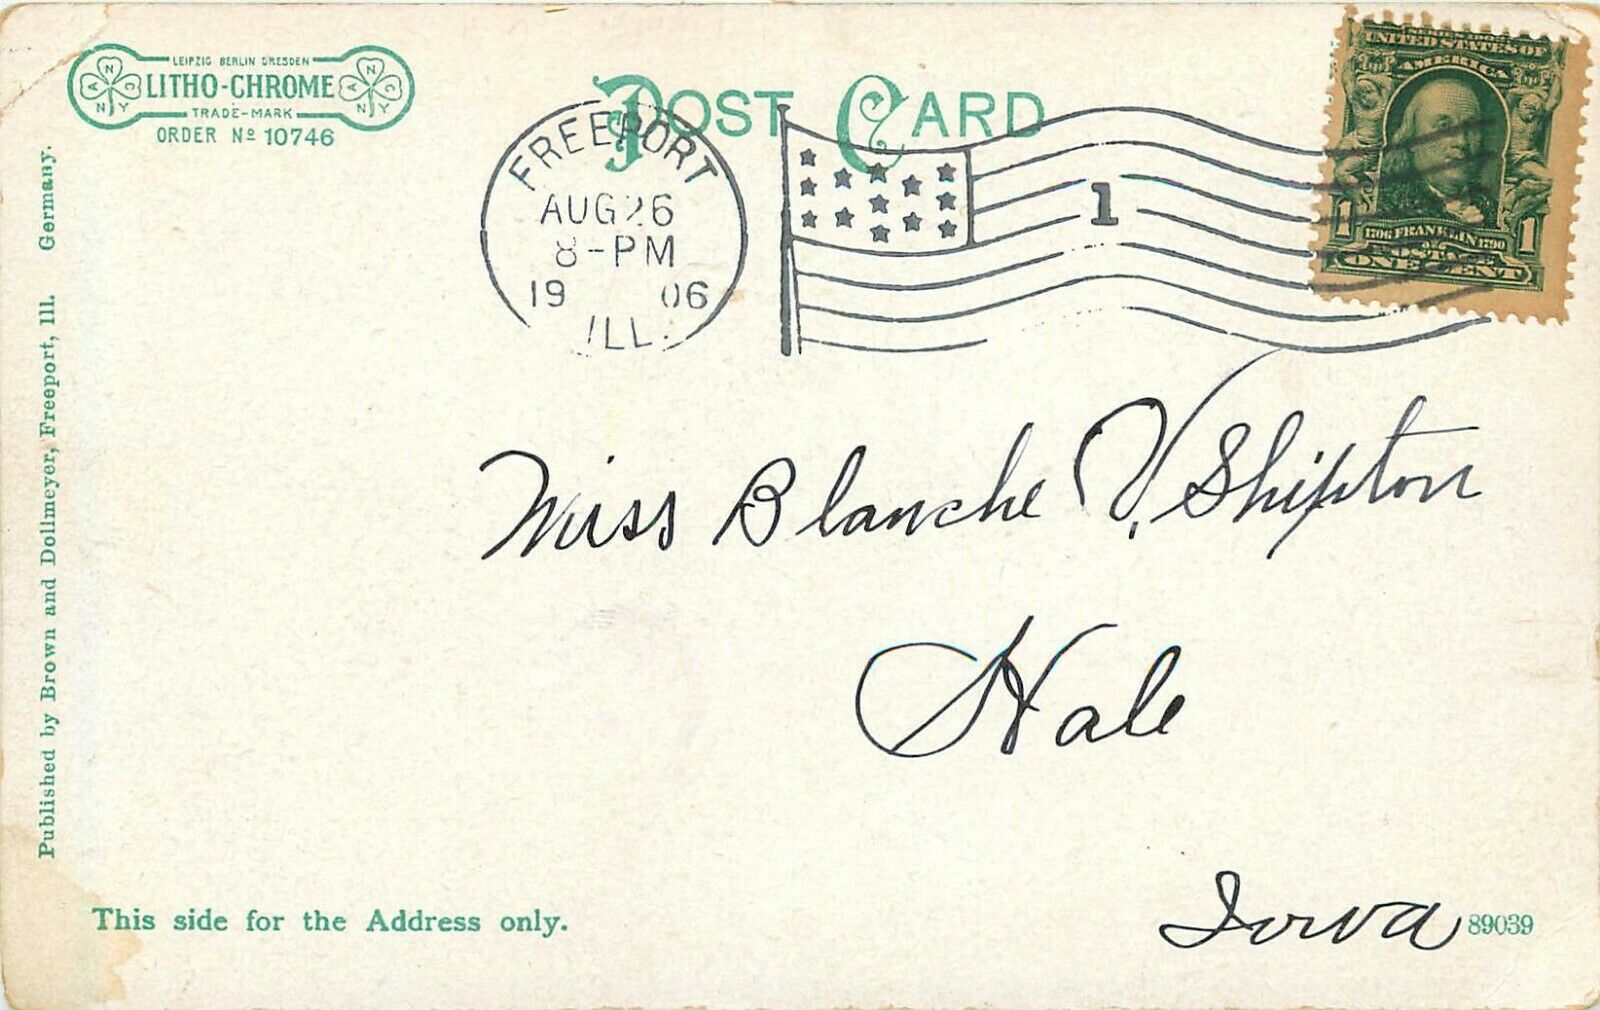 LEIPZIG BERLIN DRESDEN
LITHO-CHROME
TRADE-MARK
ORDER No 10746
POST CARD
FREEPORT
AUG 26
8-PM
1906
ILL.
1
UNITED STATES OF
AMERICA
1706 FRANKLIN 1790
1 1
POSTAGE
ONE CENT
Miss Blanche V. Shipton
Hale
Iowa
89039
This side for the Address only.
Published by Brown and Dollmeyer, Freeport, Ill. Germany.